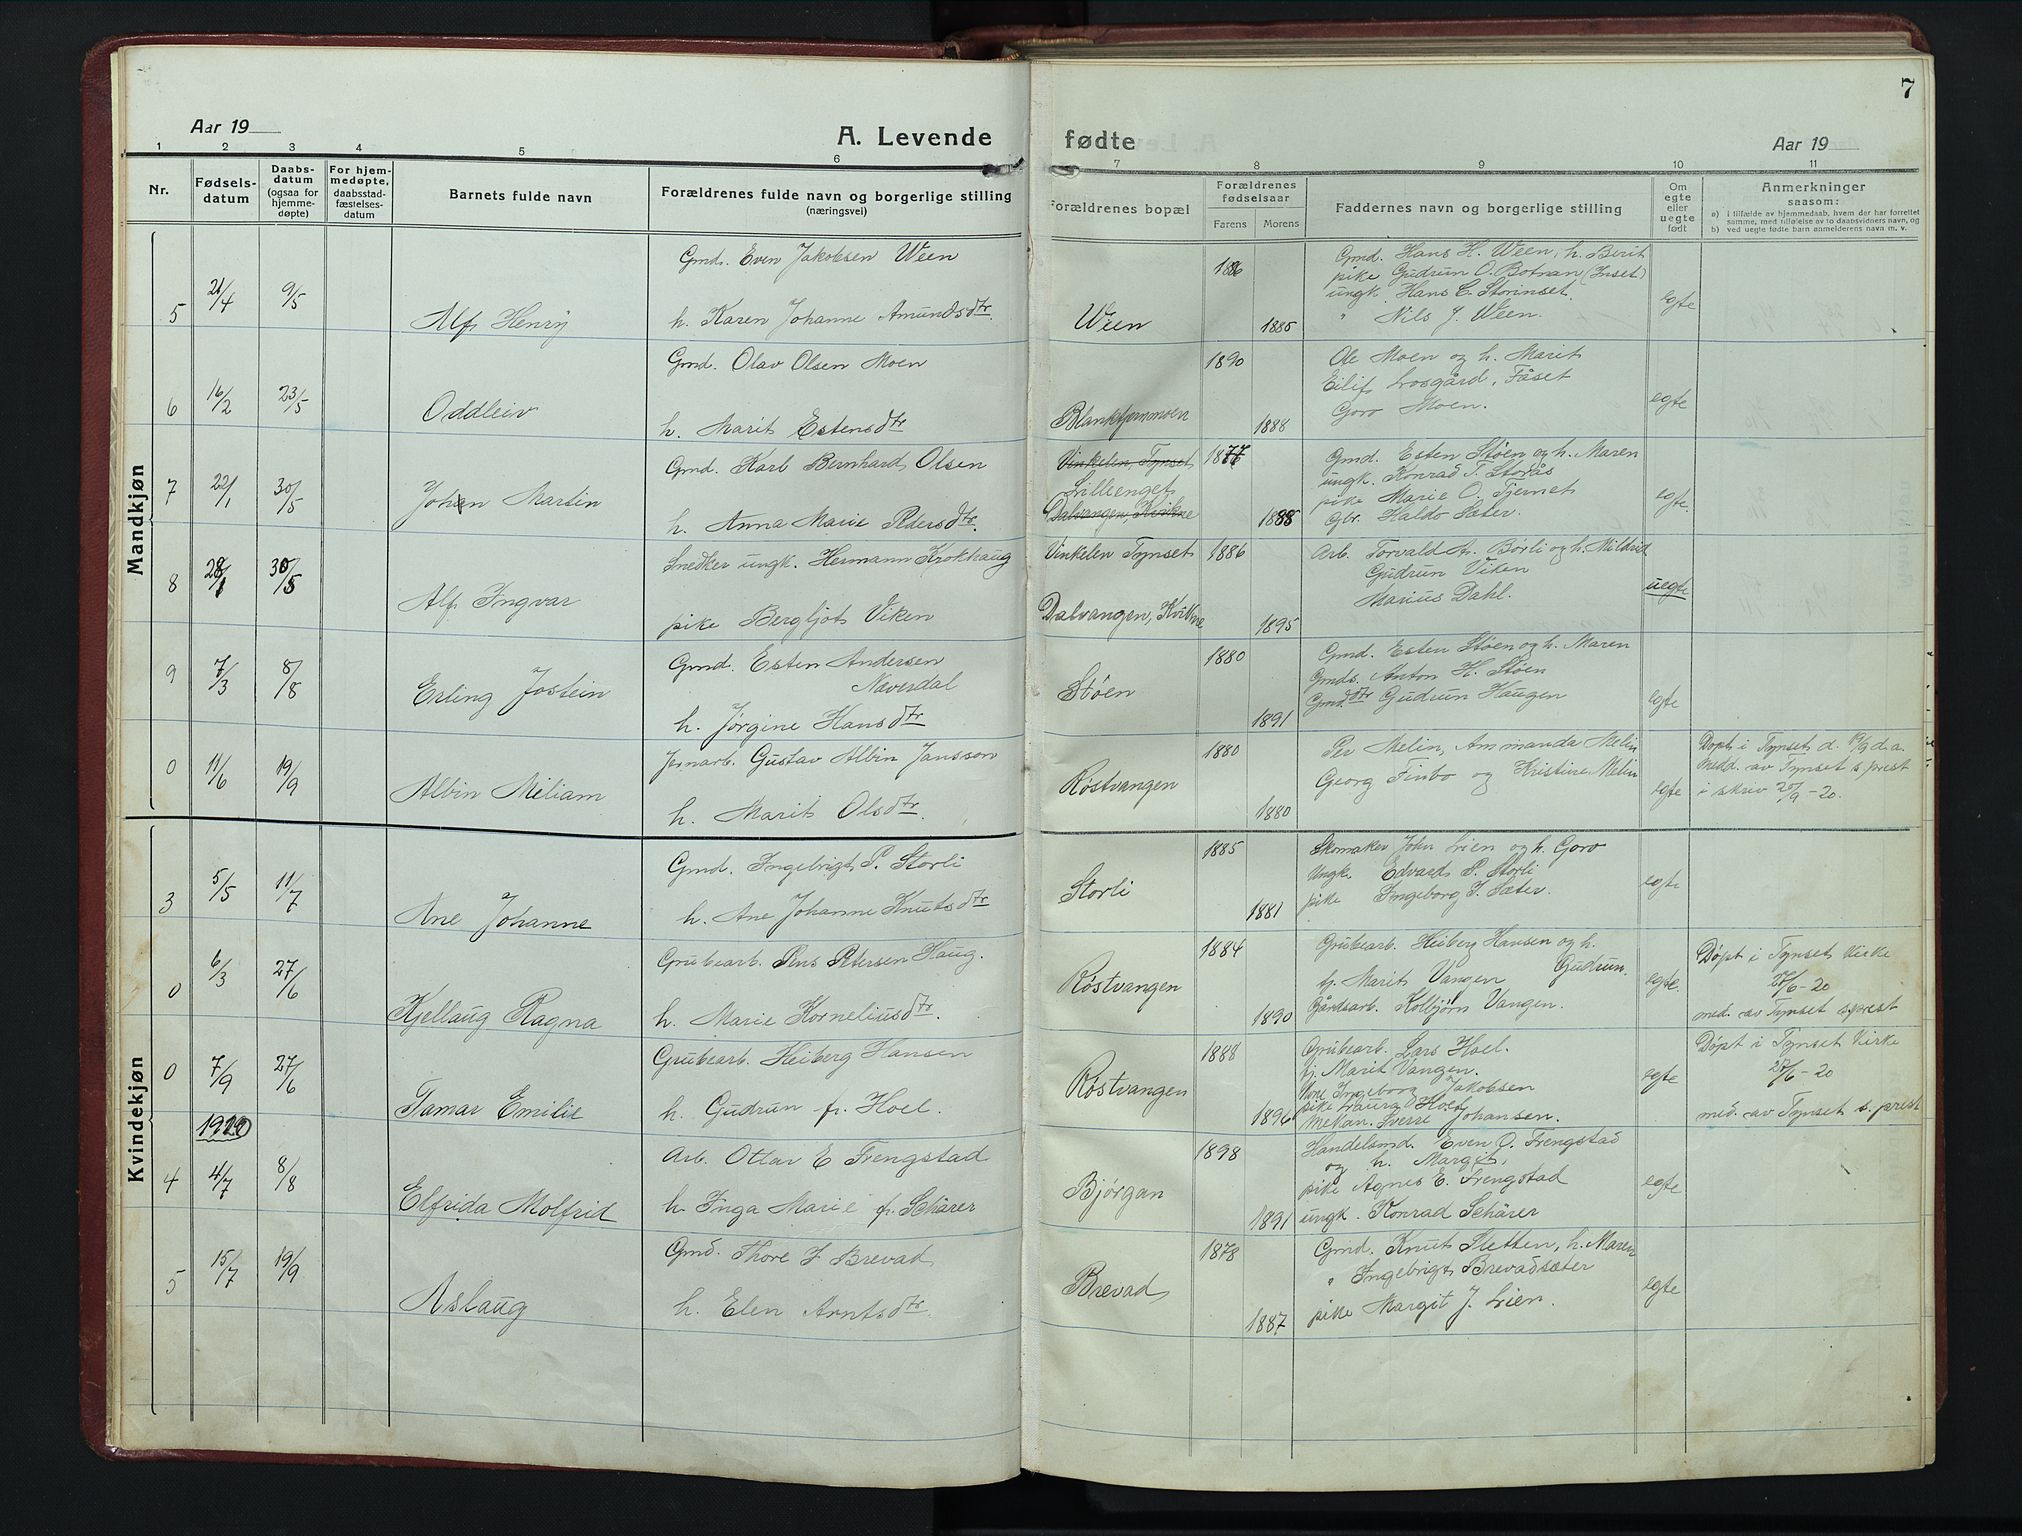 7
Aar 19
A. Levende
fødte
Aar 19
1 2 3 4 5 6 7 8 9 10 11
Nr.
Fødsels-
datum
Daabs-
datum
(ogsaa for
hjemme-
døpte)
For hjem-
medøpte,
daabsstad-
fæstelses-
datum
Barnets fulde navn
Forældrenes fulde navn og borgerlige stilling
(næringsvei)
Forældrenes bopæl
Forældrenes
fødselsaar
Farens Morens
Faddernes navn og borgerlige stilling
Om
egte
eller
uegte
født
Anmerkninger
saasom:
a) i tilfælde av hjemmedaab, hvem der har forrettet
samme, med tilføielse av to daabsvidners navn, og
b) ved uegte fødte barn anmelderens navn m. v.
Mandkjøn
5 21/4 9/5 Alf Henry
Gmd. Even Jakobsen Ween
h. Karen Johanne Amundsdtr.
Ween 1886 1885
Gmd. Hans H. Ween, h. Berit
pike Gudrun O. Botnan (Inset)
ungk. Hans C. Storinset.
" Nils J. Ween.
egte
6 16/2 23/5 Oddleiv
Gmd. Olav Olsen Moen
h. Marit Estensdtr
Blanktjernmoen 1890 1888
Ole Moen og h. Marit
Eilif Losgård, Fåset
Goro Moen.
egte
7 22/1 30/5 Johan Martin
Gmd. Karl Bernhard Olsen
h. Anna Marie Pedersdtr.
Vinkelen, Tynset
Lilleenget
Dalvangen, Kvikne
1877 1888
Gmd. Esten Støen og h. Maren
ungk. Konrad T. Storås
pike Marie O. Tjernet
Gbr. Haldo Sæter.
egte.
8 28/1 30/5 Alf Ingvar
Snedker ungk. Hermann Krokhaug
pike Bergljot Viken
Vinkelen Tynset
Dalvangen, Kvikne
1886 1895
Arb. Torvald A. Børli og h. Mildrid
Gudrun Viken
Marius Dahl.
uegte
9 7/3 8/8 Erling Jostein
Gmd. Esten Andersen
Naverdal
h. Jørgine Hansdtr
Støen 1880 1891
Gmd. Esten Støen og h. Maren
Gmds. Anton H. Støen
Gmd.dtr Gudrun Haugen
egte
0 11/6 19/9 Albin Miliam
Jernarb. Gustav Albin Jansson
h. Marit Olsdtr.
Røstvangen 1880 1880
Per Melin, Ammanda Melin
Georg Finbo og Kristine Melin
egte
Døpt i Tynset d. 19/9 d.a.
Medd. av Tynset s. prest
i skriv 20/9 - 20.
Kvindekjøn
3 5/5 11/7 Ane Johanne
Gmd. Ingebrigt P. Storli
h. Ane Johanne Knutsdtr
Storli 1885 1881
Skomaker John Lien og h. Goro
Ungk. Edvard P. Storli
pike Ingeborg I. Sæter.
egte
0 6/3 27/6 Kjellaug Ragna
Grubearb. Petersen Haug.
h. Marie Korneliusdtr.
Røstvangen 1884 1890
Grubearb. Heiberg Hansen og h.
Gudrun.
fr. Marit Vangen
Gårdsarb. Kolbjørn Vangen.
egte.
Døpt i Tynset kirke
27/6 - 20
med. av Tynset s. prest
0 7/9 27/6 Tamar Emilie
1919
Grubearb. Heiberg Hansen
h. Gudrun f. Hoel.
Røstvangen 1888 1896
Grubearb. Lars Hoel.
fr. Marit Vangen.
Ingeborg Jakobsen
pike Laura Hoel
Mekan. Sverre Johansen.
egte
Døpt i Tynset kirke
27/6 - 20
med. av Tynset s. prest
4 4/7 8/8 Elfrida Molfrid
Arb. Ottar E Trengstad
h. Inga Marie f. Schärer
Bjørgan 1898 1891
Handelsmd. Even O. Trengstad
og h. Margit,
pike Agnes E. Trengstad
ungk. Konrad Schärer
egte
5 15/7 19/9 Aslaug
Gmd. Thore I Brevad
h. Elen Arntsdtr.
Brevad 1878 1887
Gmd. Knut Sletten, h. Maren
" Ingebrigt Brevadsæter
pike Margit J. Lien.
egte